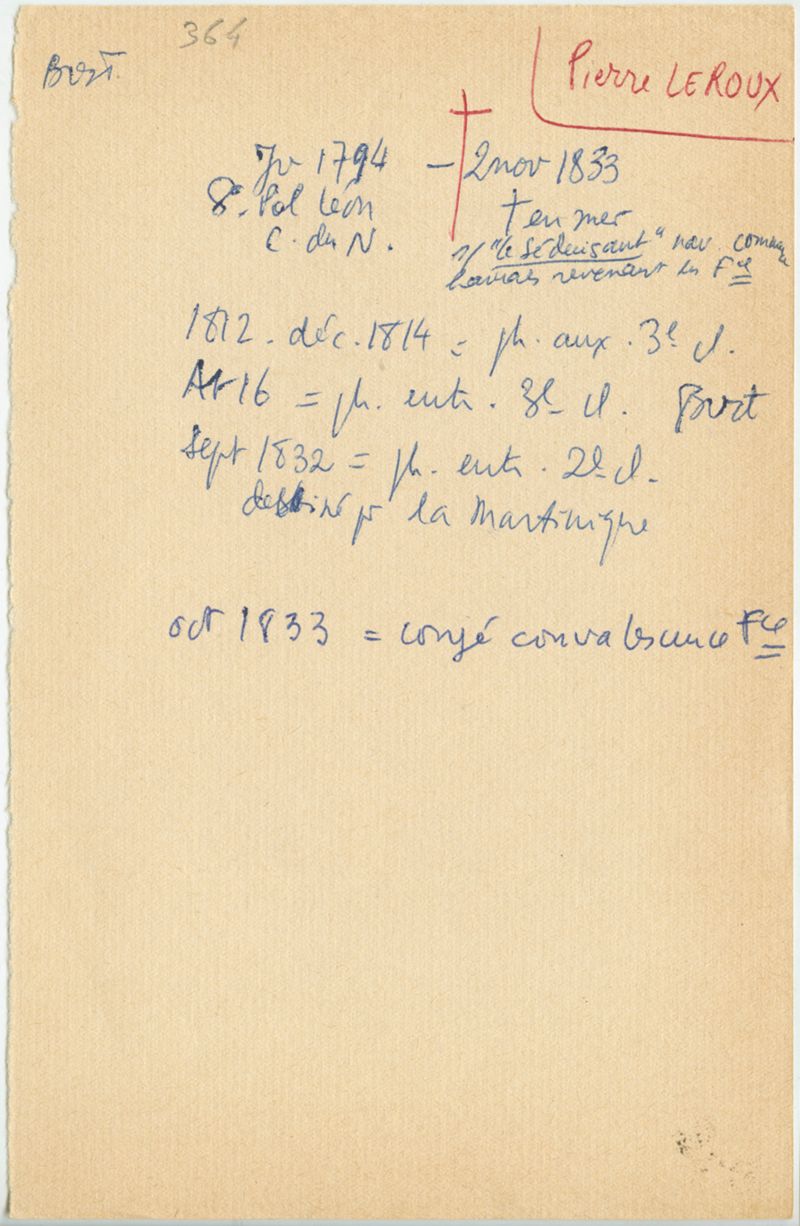 364
Brest
Pierre LEROUX
Jv 1794 — 2 nov 1833
St. Pol Léon
C. du N.
† en mer
s/ "le Séduisant" nav. comm
revenant en Fce
1812 - déc. 1814 = ph. aux. 3e cl.
16 = ph. entr. 3e cl. Brest
Sept 1832 = ph. entr. 2e cl.
destiné pr la Martinique
oct 1833 = congé convalescence Fce